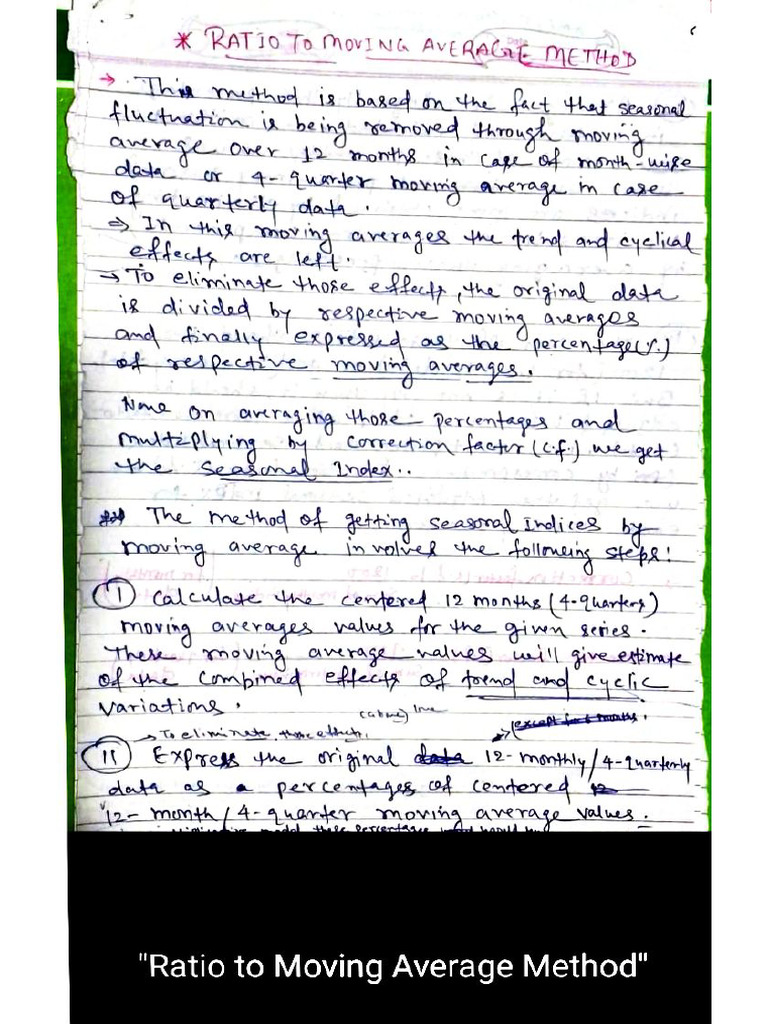 * RATIO TO MOVING AVERAGE METHOD
→ This method is based on the fact that seasonal
fluctuation is being removed through moving
average over 12 months in case of month-wise
data or 4-quarter moving average in case
of quarterly data.
⇒ In this moving averages the trend and cyclical
effects are left.
→ To eliminate those effects, the original data
is divided by respective moving averages
and finally expressed as the percentage(%)
of respective moving averages.
Now on averaging those percentages and
multiplying by correction factor (c.f.) we get
the seasonal Index..
The method of getting seasonal indices by
moving average involves the following steps:
(I) Calculate the centered 12 months (4-quarters)
moving averages values for the given series.
These moving average values will give estimate
of the combined effects of trend and cyclic
variations.
(above) line
→ To eliminate those effects,
(except for 6 months.
(II) Express the original data 12-monthly/4-quarterly
data as a percentages of centered 12
12-month/4-quarter moving average values.
"Ratio to Moving Average Method"